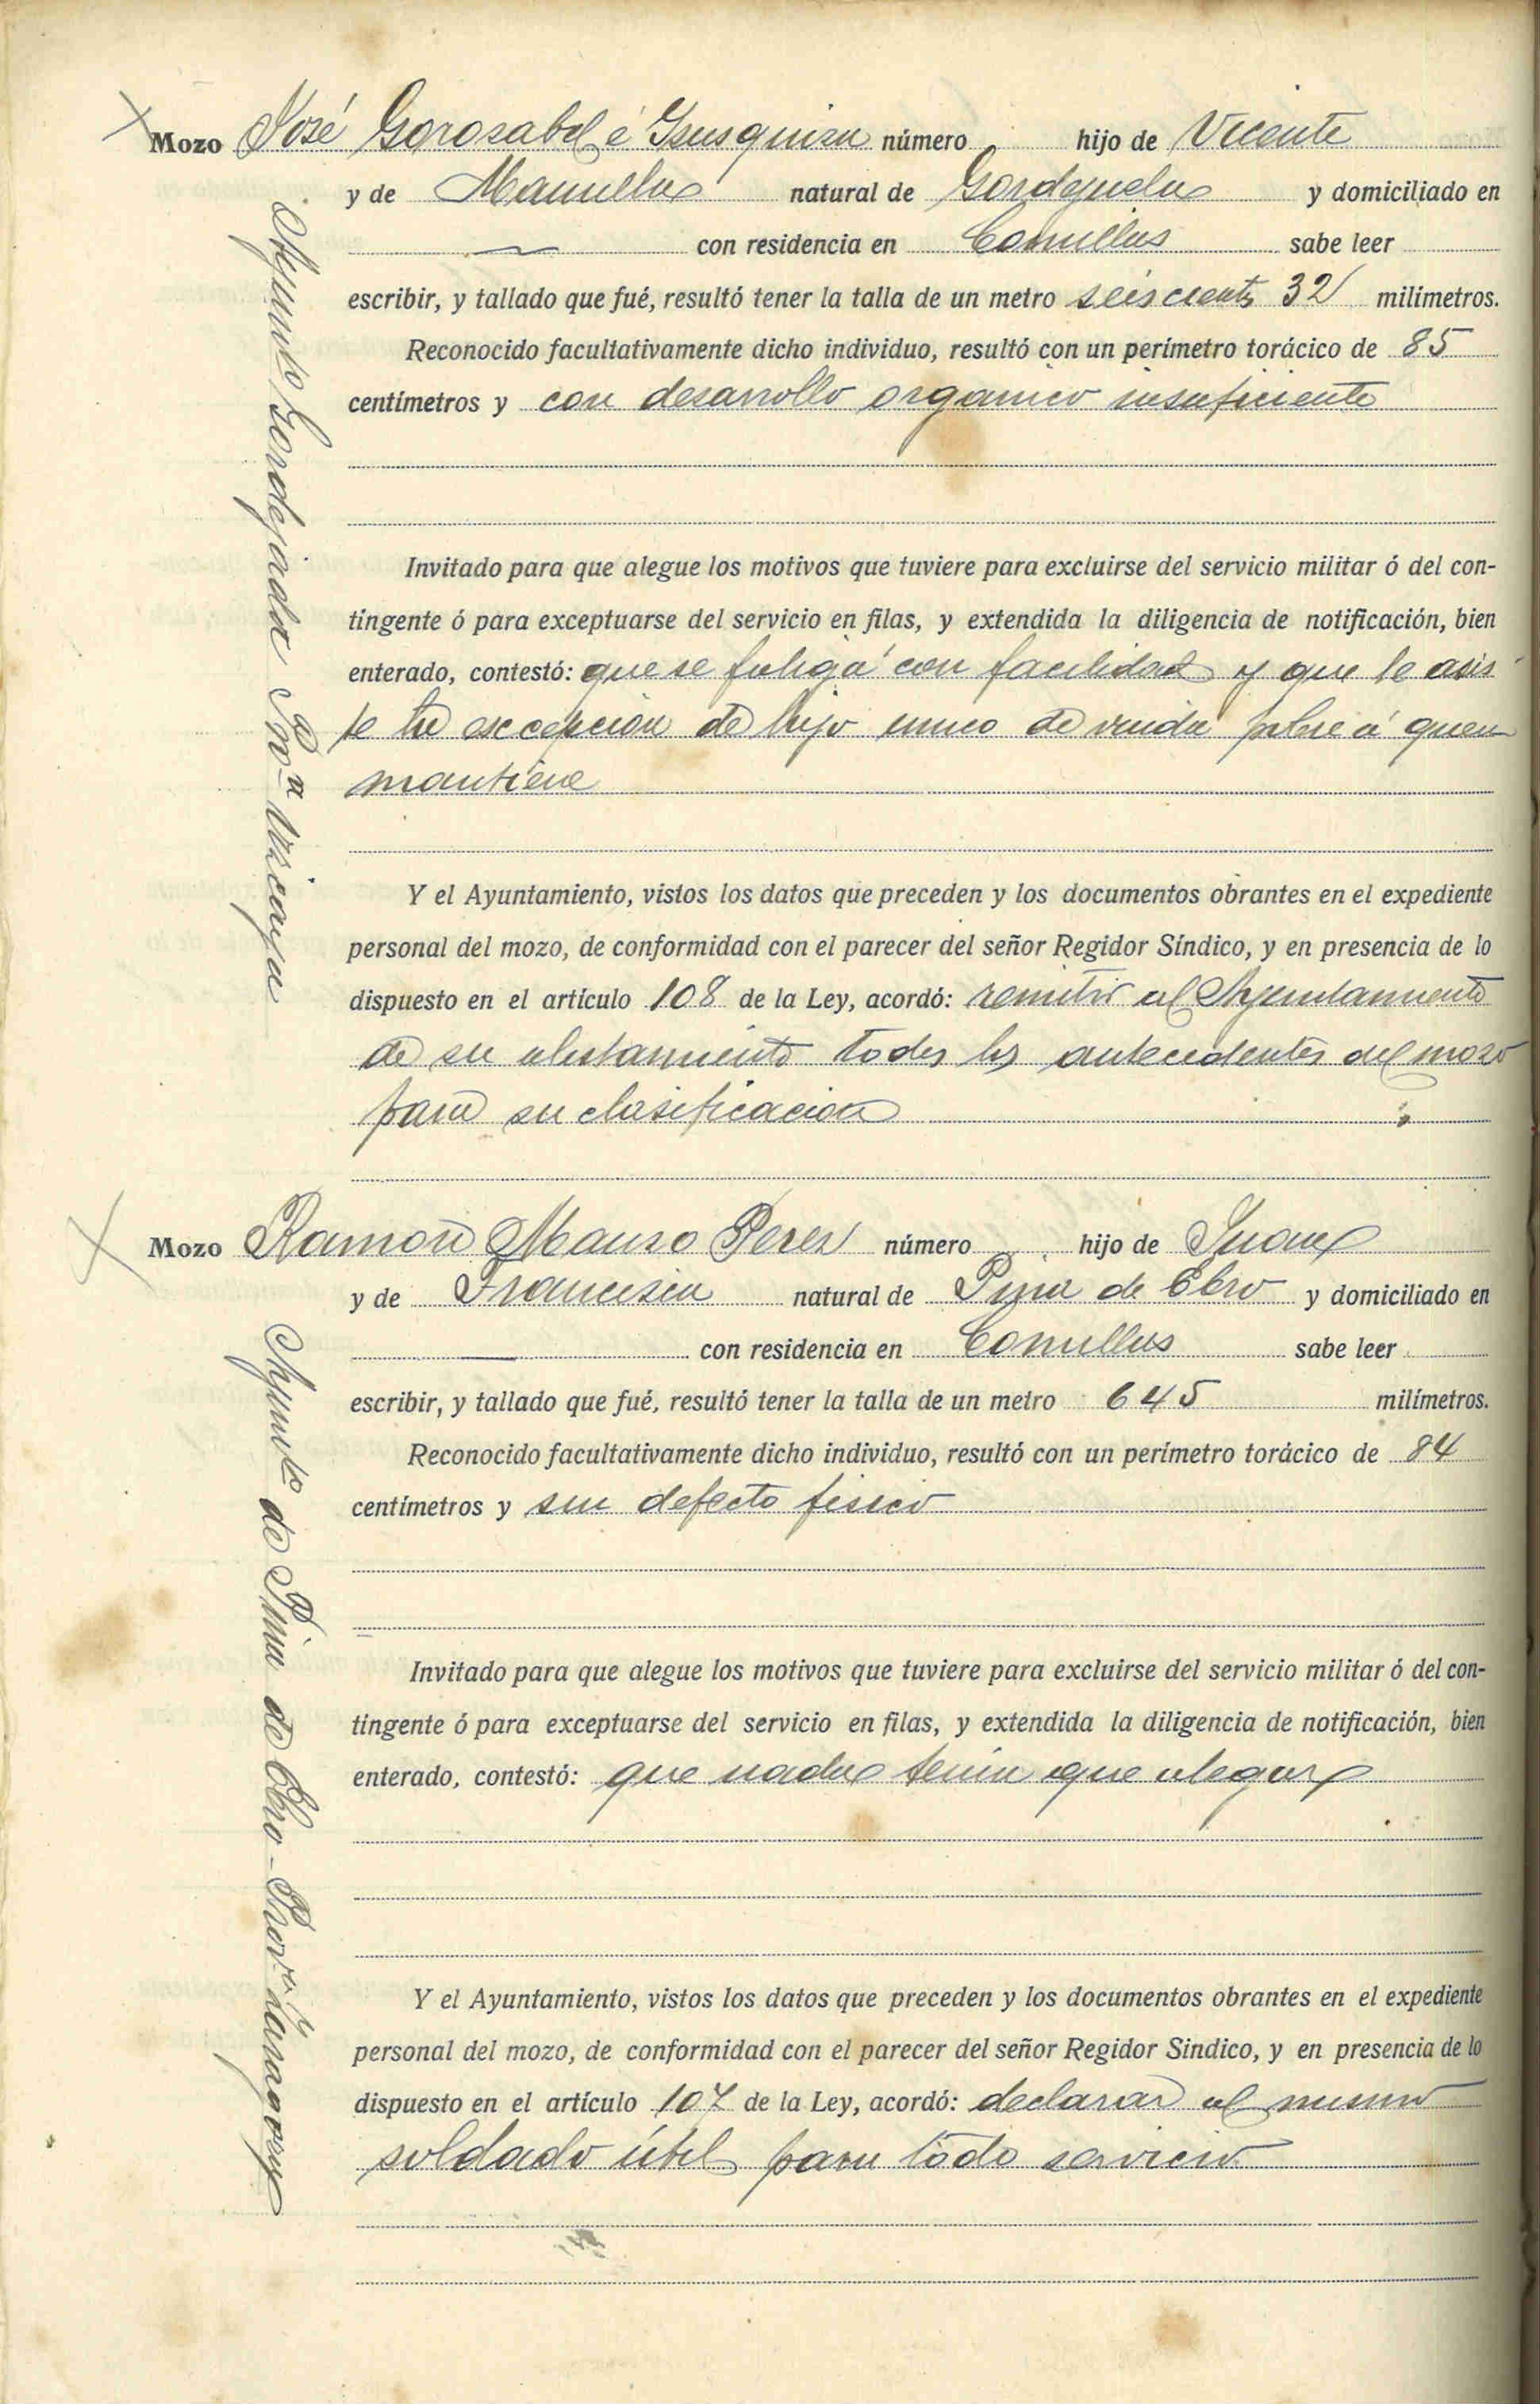 Mozo José Gorosabel é Ysusquiza número hijo de Vicente
y de Manuella natural de Gordejuela y domiciliado en
con residencia en Comillas sabe leer
escribir, y tallado que fué, resultó tener la talla de un metro seiscients 32 milimetros.
Reconocido facultativamente dicho individuo, resultó con un perímetro torácico de 85
centímetros y con desarrollo organico insuficiente
Invitado para que alegue los motivos que tuviere para excluirse del servicio militar ó del con-
tingente ó para exceptuarse del servicio en filas, y extendida la diligencia de notificación, bien
enterado, contestó: que se fatiga con facilidad y que le asis
te la excepcion de hijo unico de viuda pobre á quien
mantiene
Y el Ayuntamiento, vistos los datos que preceden y los documentos obrantes en el expediente
personal del mozo, de conformidad con el parecer del señor Regidor Síndico, y en presencia de lo
dispuesto en el artículo 108 de la Ley, acordó: remitir al Ayuntamiento
de su alistamiento todos los antecedentes del mozo
para su clasificacion
Ayunto Gordejuela Proa Vizcaya
Mozo Ramon Manso Perez número hijo de Juan
y de Francisca natural de Pina de Ebro y domiciliado en
con residencia en Comillas sabe leer
escribir, y tallado que fué, resultó tener la talla de un metro 645 milímetros.
Reconocido facultativamente dicho individuo, resultó con un perímetro torácico de 84
centímetros y sin defecto fisico
Invitado para que alegue los motivos que tuviere para excluirse del servicio militar ó del con-
tingente ó para exceptuarse del servicio en filas, y extendida la diligencia de notificación, bien
enterado, contestó: que nada tenia que alegar
Y el Ayuntamiento, vistos los datos que preceden y los documentos obrantes en el expediente
personal del mozo, de conformidad con el parecer del señor Regidor Sindico, y en presencia de lo
dispuesto en el artículo 107 de la Ley, acordó: declarar al mismo
soldado útil para todo servicio
Ayunto de Pina de Ebro - Prova Zaragoza